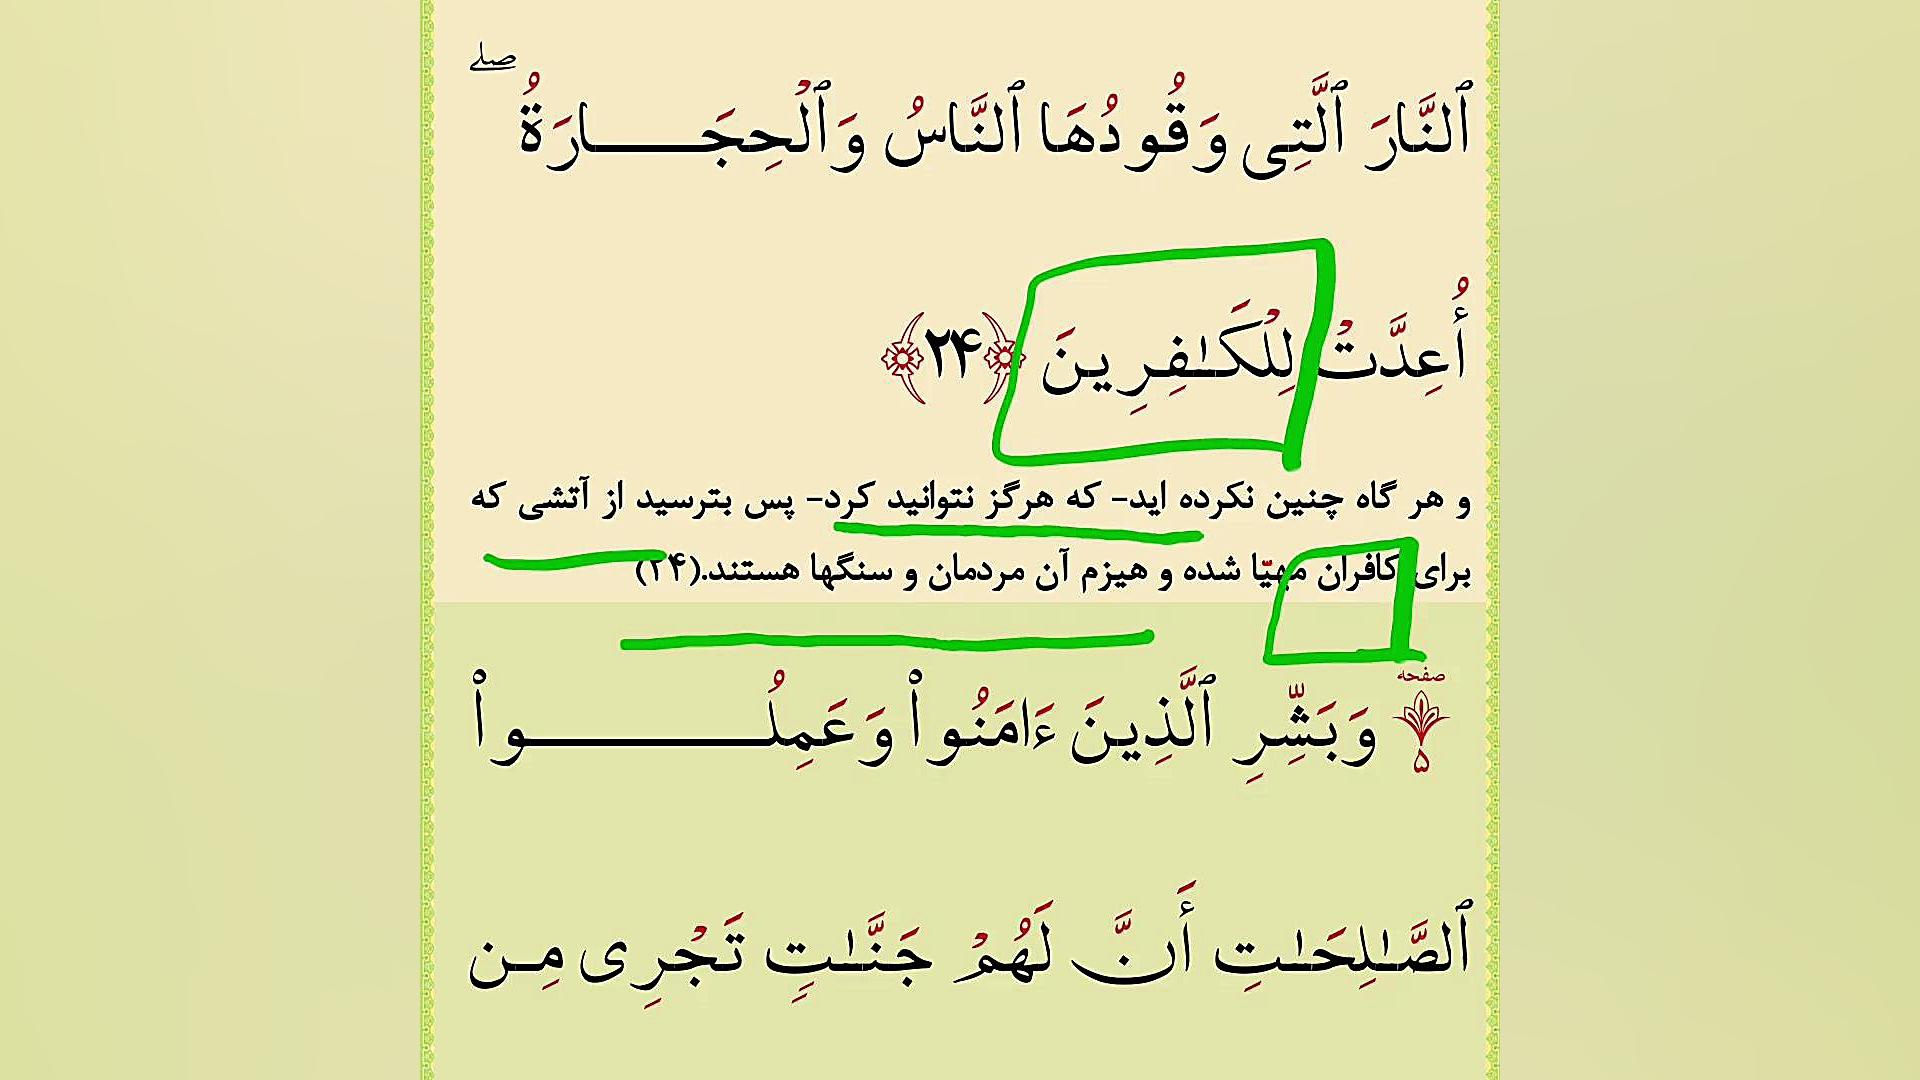 صلے
ٱلنَّارَ ٱلَّتِى وَقُودُهَا ٱلنَّاسُ وَٱلْحِجَـارَةُ
أُعِدَّتْ لِلْكَـٰفِرِينَ ﴿۲۴﴾
و هر گاه چنین نکرده اید- که هرگز نتوانید کرد- پس بترسید از آتشی که
برای کافران مهیّا شده و هیزم آن مردمان و سنگها هستند.(۲۴)
صفحه
۵ وَبَشِّرِ ٱلَّذِينَ ءَامَنُواْ وَعَمِلُـواْ
ٱلصَّـٰلِحَـٰتِ أَنَّ لَهُمْ جَنَّـٰتٍ تَجْرِى مِـن